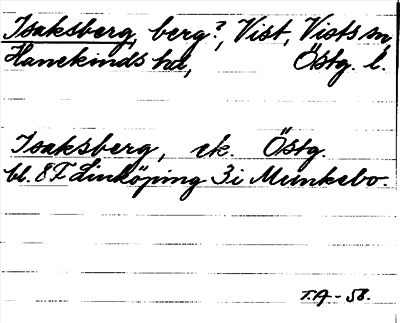 Isaksberg, berg?, Vist, Vists sn,
Hanekinds hd, Östg. l.
Isaksberg, ek. Östg.
bl. 8F Linköping 3i Munkebo.
T.A-58.